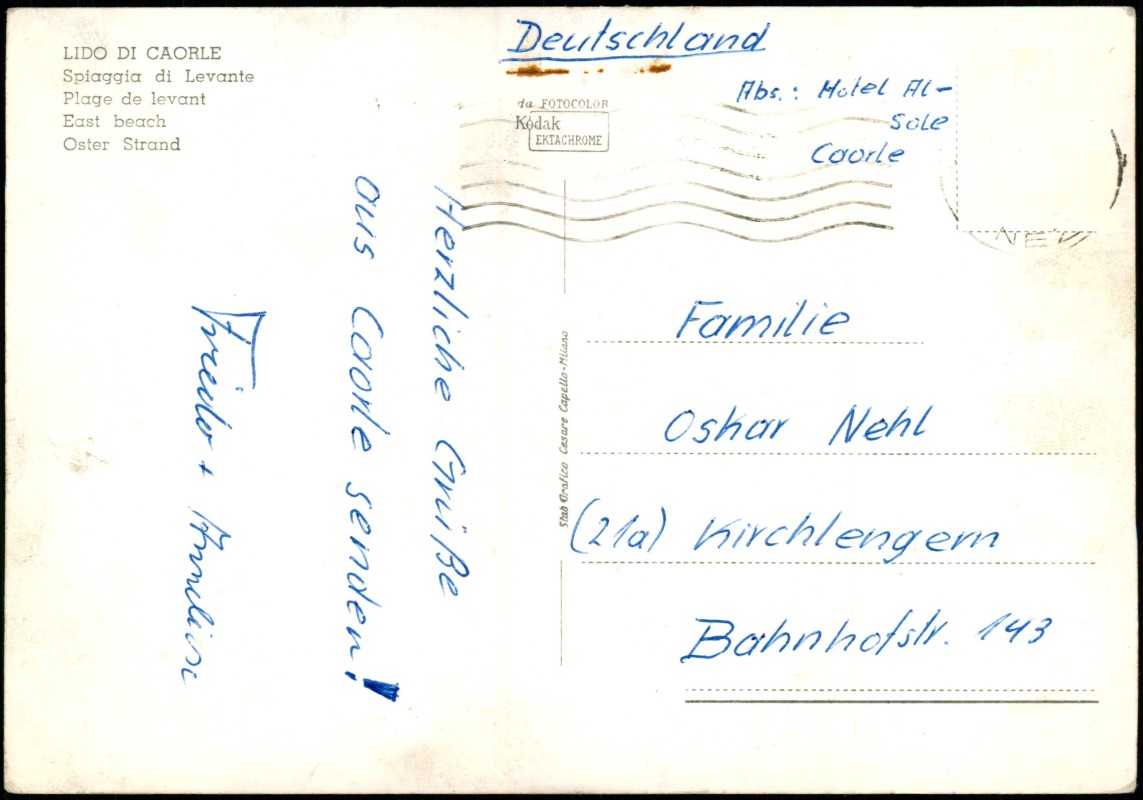 LIDO DI CAORLE
Spiaggia di Levante
Plage de levant
East beach
Oster Strand
Deutschland
da FOTOCOLOR
Kodak
EKTACHROME
Abs.: Hotel Al-
Sole
Caorle
Herzliche Grüße
aus Caorle senden!
Friedo + Annelise
Stab Grafico Cesare Capello-Milano
Familie
Oskar Nehl
(21a) Kirchlengern
Bahnhofstr. 143